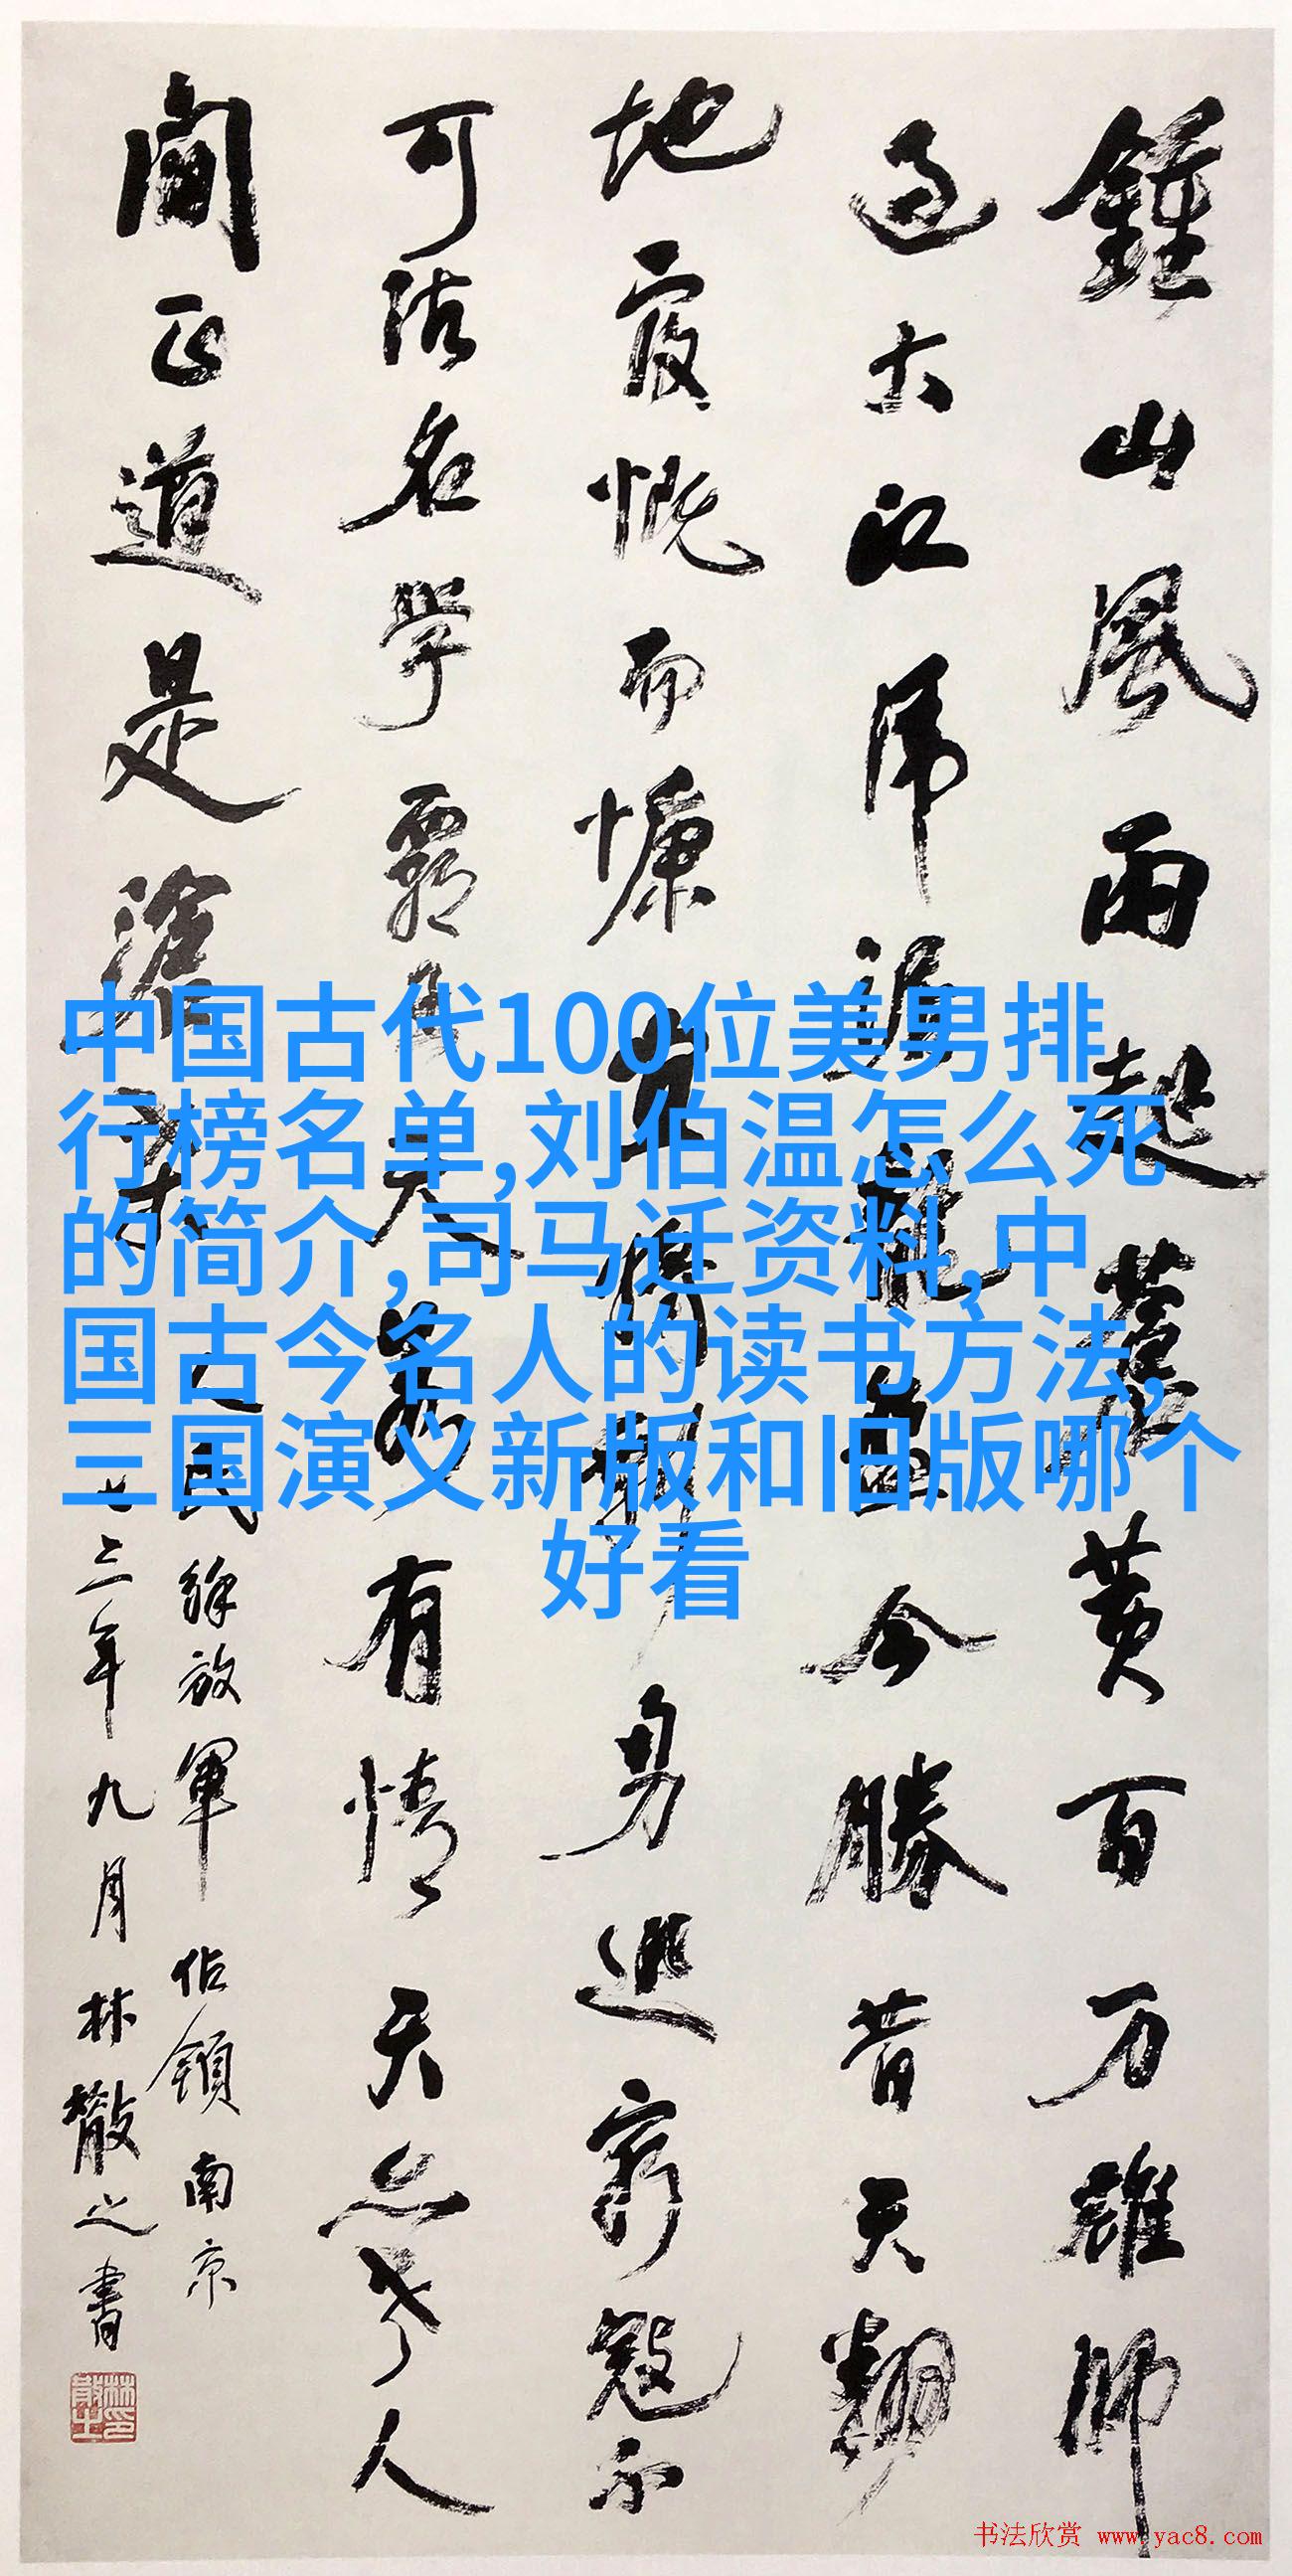 鍾山風雨起蒼黄百万雄師
过大江虎踞龍盤今勝昔天翻
地覆慨而慷宜將剩勇追窮寇不
可沽名學霸王天若有情天亦老人
間正道是滄桑 人民解放軍佔領南京
七三年九月林散之書
中国古代100位美男排
行榜名单,刘伯温怎么死
的简介,司马迁资料,中
国古今名人的读书方法,
三国演义新版和旧版哪个
好看
书法欣赏 www.yac8.com